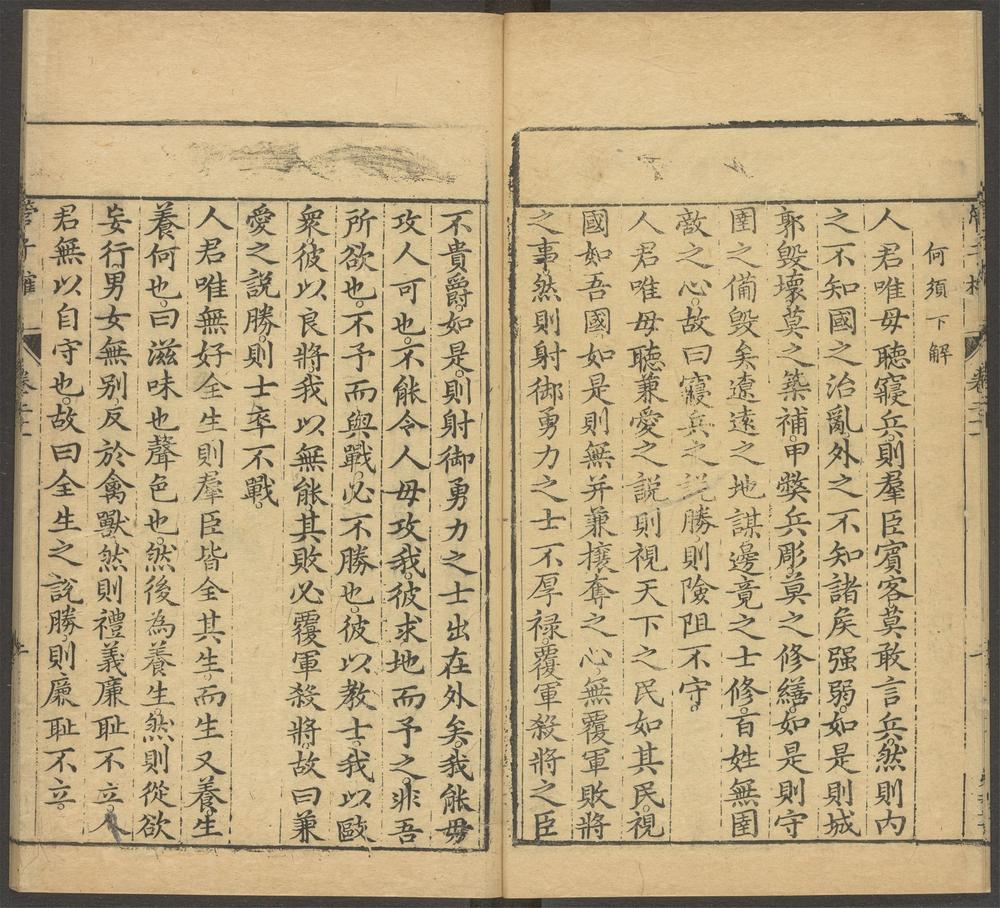 何須下解
人君唯毋聽寢兵。則羣臣賓客莫敢言兵。然則内
之不知國之治亂。外之不知諸矦强弱。如是則城
郭毀壞莫之築補。甲弊兵彫。莫之修繕。如是則守
圉之備毀矣。遼遠之地謀。邊竟之士修。百姓無圉
敵之心。故曰寢兵之說勝。則險阻不守。
人君唯毋聽兼愛之說。則視天下之民如其民。視
國如吾國。如是則無并兼攘奪之心。無覆軍敗將
之事。然則射御勇力之士不厚禄。覆軍殺將之臣
不貴爵。如是。則射御勇力之士出在外矣。我能毋
攻人可也。不能令人毋攻我。彼求地而予之。非吾
所欲也。不予而與戰。必不勝也。彼以教士。我以敺
衆。彼以良將。我以無能。其敗必覆軍殺將。故曰兼
愛之說勝。則士卒不戰。
人君唯無好全生。則羣臣皆全其生。而生又養。生
養何也。曰滋味也。聲色也。然後為養生。然則從欲
妄行。男女無别。反於禽獸。然則禮義廉耻不立。人
君無以自守也。故曰全生之說勝。則廉耻不立。